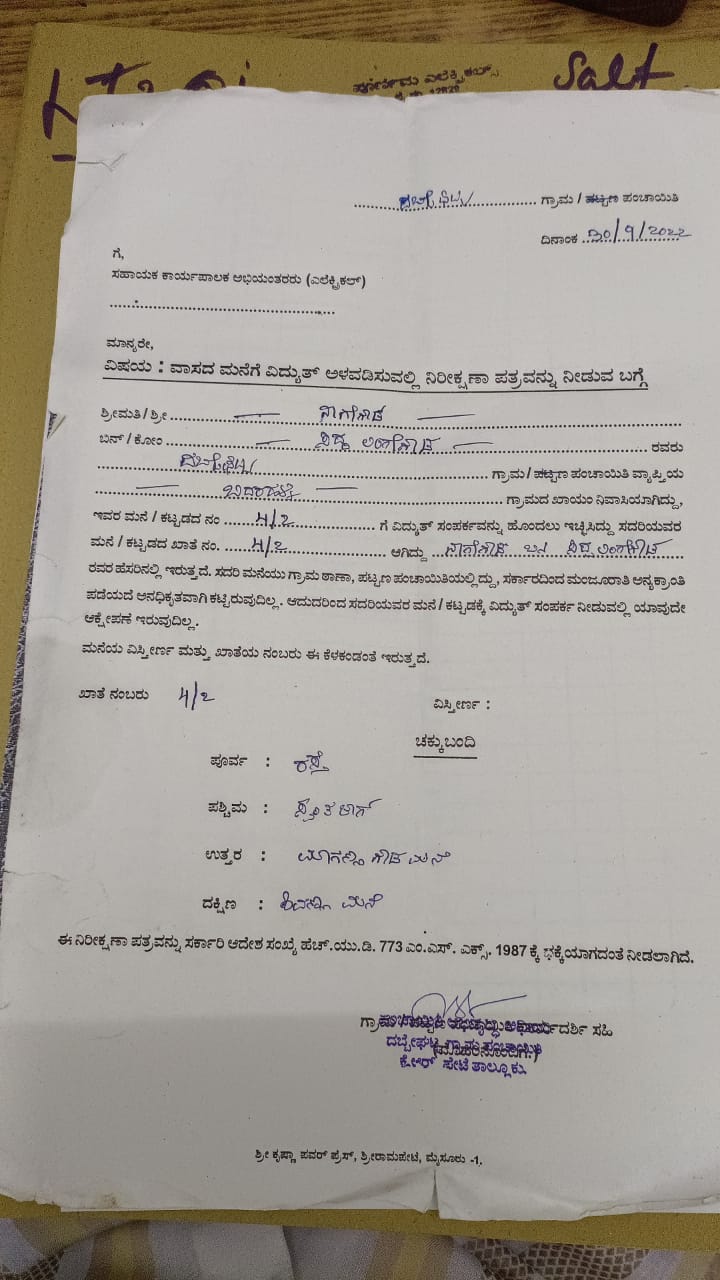 Salt
ಪೂರ್ಣಿಮ ಎಲೆಕ್ಟ್ರಿಕಲ್ಸ್
.......................... ಗ್ರಾಮ / ಪಟ್ಟಣ ಪಂಚಾಯಿತಿ
ದಿನಾಂಕ 30/9/2022
ಗೆ,
ಸಹಾಯಕ ಕಾರ್ಯಪಾಲಕ ಅಭಿಯಂತರರು (ಎಲೆಕ್ಟ್ರಿಕಲ್)
ಮಾನ್ಯರೇ,
ವಿಷಯ : ವಾಸದ ಮನೆಗೆ ವಿದ್ಯುತ್ ಅಳವಡಿಸುವಲ್ಲಿ ನಿರೀಕ್ಷಣಾ ಪತ್ರವನ್ನು ನೀಡುವ ಬಗ್ಗೆ
ಶ್ರೀಮತಿ/ಶ್ರೀ ನಾಗೇಗೌಡ
ಬಿನ್ / ಕೋಂ ಲಿಂಗೇಗೌಡ ರವರು
ಗ್ರಾಮ/ಪಟ್ಟಣ ಪಂಚಾಯಿತಿ ವ್ಯಾಪ್ತಿಯ
ಗ್ರಾಮದ ಖಾಯಂ ನಿವಾಸಿಯಾಗಿದ್ದು,
ಇವರ ಮನೆ / ಕಟ್ಟಡದ ನಂ 4/2 ಗೆ ವಿದ್ಯುತ್ ಸಂಪರ್ಕವನ್ನು ಹೊಂದಲು ಇಚ್ಛಿಸಿದ್ದು ಸದರಿಯವರ
ಮನೆ / ಕಟ್ಟಡದ ಖಾತೆ ನಂ. 4/2 ಆಗಿದ್ದು ನಾಗೇಗೌಡ ಬಿನ್ ಲಿಂಗೇಗೌಡ
ರವರ ಹೆಸರಿನಲ್ಲಿ ಇರುತ್ತದೆ. ಸದರಿ ಮನೆಯು ಗ್ರಾಮ ಠಾಣಾ, ಪಟ್ಟಣ ಪಂಚಾಯಿತಿಯಲ್ಲಿದ್ದು, ಸರ್ಕಾರದಿಂದ ಮಂಜೂರಾತಿ ಅನ್ಯಕ್ರಾಂತಿ
ಪಡೆಯದೆ ಅನಧಿಕೃತವಾಗಿ ಕಟ್ಟಿರುವುದಿಲ್ಲ. ಆದುದರಿಂದ ಸದರಿಯವರ ಮನೆ / ಕಟ್ಟಡಕ್ಕೆ ವಿದ್ಯುತ್ ಸಂಪರ್ಕ ನೀಡುವಲ್ಲಿ ಯಾವುದೇ
ಆಕ್ಷೇಪಣೆ ಇರುವುದಿಲ್ಲ.
ಮನೆಯ ವಿಸ್ತೀರ್ಣ ಮತ್ತು ಖಾತೆಯ ನಂಬರು ಈ ಕೆಳಕಂಡಂತೆ ಇರುತ್ತದೆ.
ಖಾತೆ ನಂಬರು 4/2 ವಿಸ್ತೀರ್ಣ :
ಚಕ್ಕುಬಂದಿ
ಪೂರ್ವ : ರಸ್ತೆ
ಪಶ್ಚಿಮ :
ಉತ್ತರ : ಮನೆ
ದಕ್ಷಿಣ : ಮನೆ
ಈ ನಿರೀಕ್ಷಣಾ ಪತ್ರವನ್ನು ಸರ್ಕಾರಿ ಆದೇಶ ಸಂಖ್ಯೆ ಹೆಚ್.ಯು.ಡಿ. 773 ಎಂ.ಎಸ್. ಎಕ್ಸ್. 1987 ಕ್ಕೆ ಭಕ್ಕೆಯಾಗದಂತೆ ನೀಡಲಾಗಿದೆ.
ದಬ್ಬೇಘಟ್ಟ ಗ್ರಾಮ ಪಂಚಾಯಿತಿ
ಕೆ.ಆರ್ ಪೇಟೆ ತಾಲ್ಲೂಕು.
ಶ್ರೀ ಕೃಷ್ಣಾ ಪವರ್ ಪ್ರೆಸ್, ಶ್ರೀರಾಮಪೇಟೆ, ಮೈಸೂರು -1.